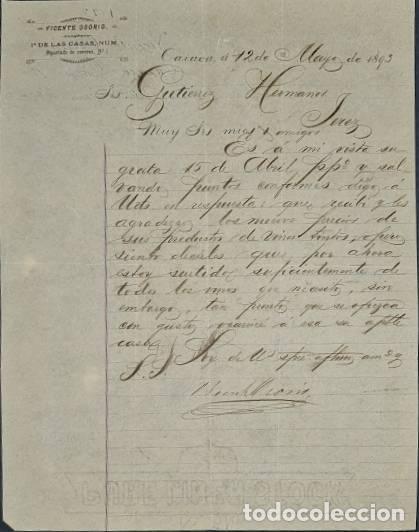 VICENTE OSORIO.
Pº DE LAS CASAS, NUM.
Apartado de correos, Nº
á 12 de Mayo de 1893
Sres. Gutierrez Hermanos
Jerez
Muy Sres mios y amigos
Es á mi vista su
grata 15 de Abril ppº y sal-
vando puntos conformes digo á
Uds en respuesta que recibi y les
agradezco los nuevos precios de
sus productos de vinos tintos,
siento decirles que por ahora
estoy surtido suficientemente de
todos los vinos que necesito, sin
embargo, tan pronto que se ofrezca
con gusto á esa su aptble
casa.
Soy de Us
S. S.
todocoleccion.com